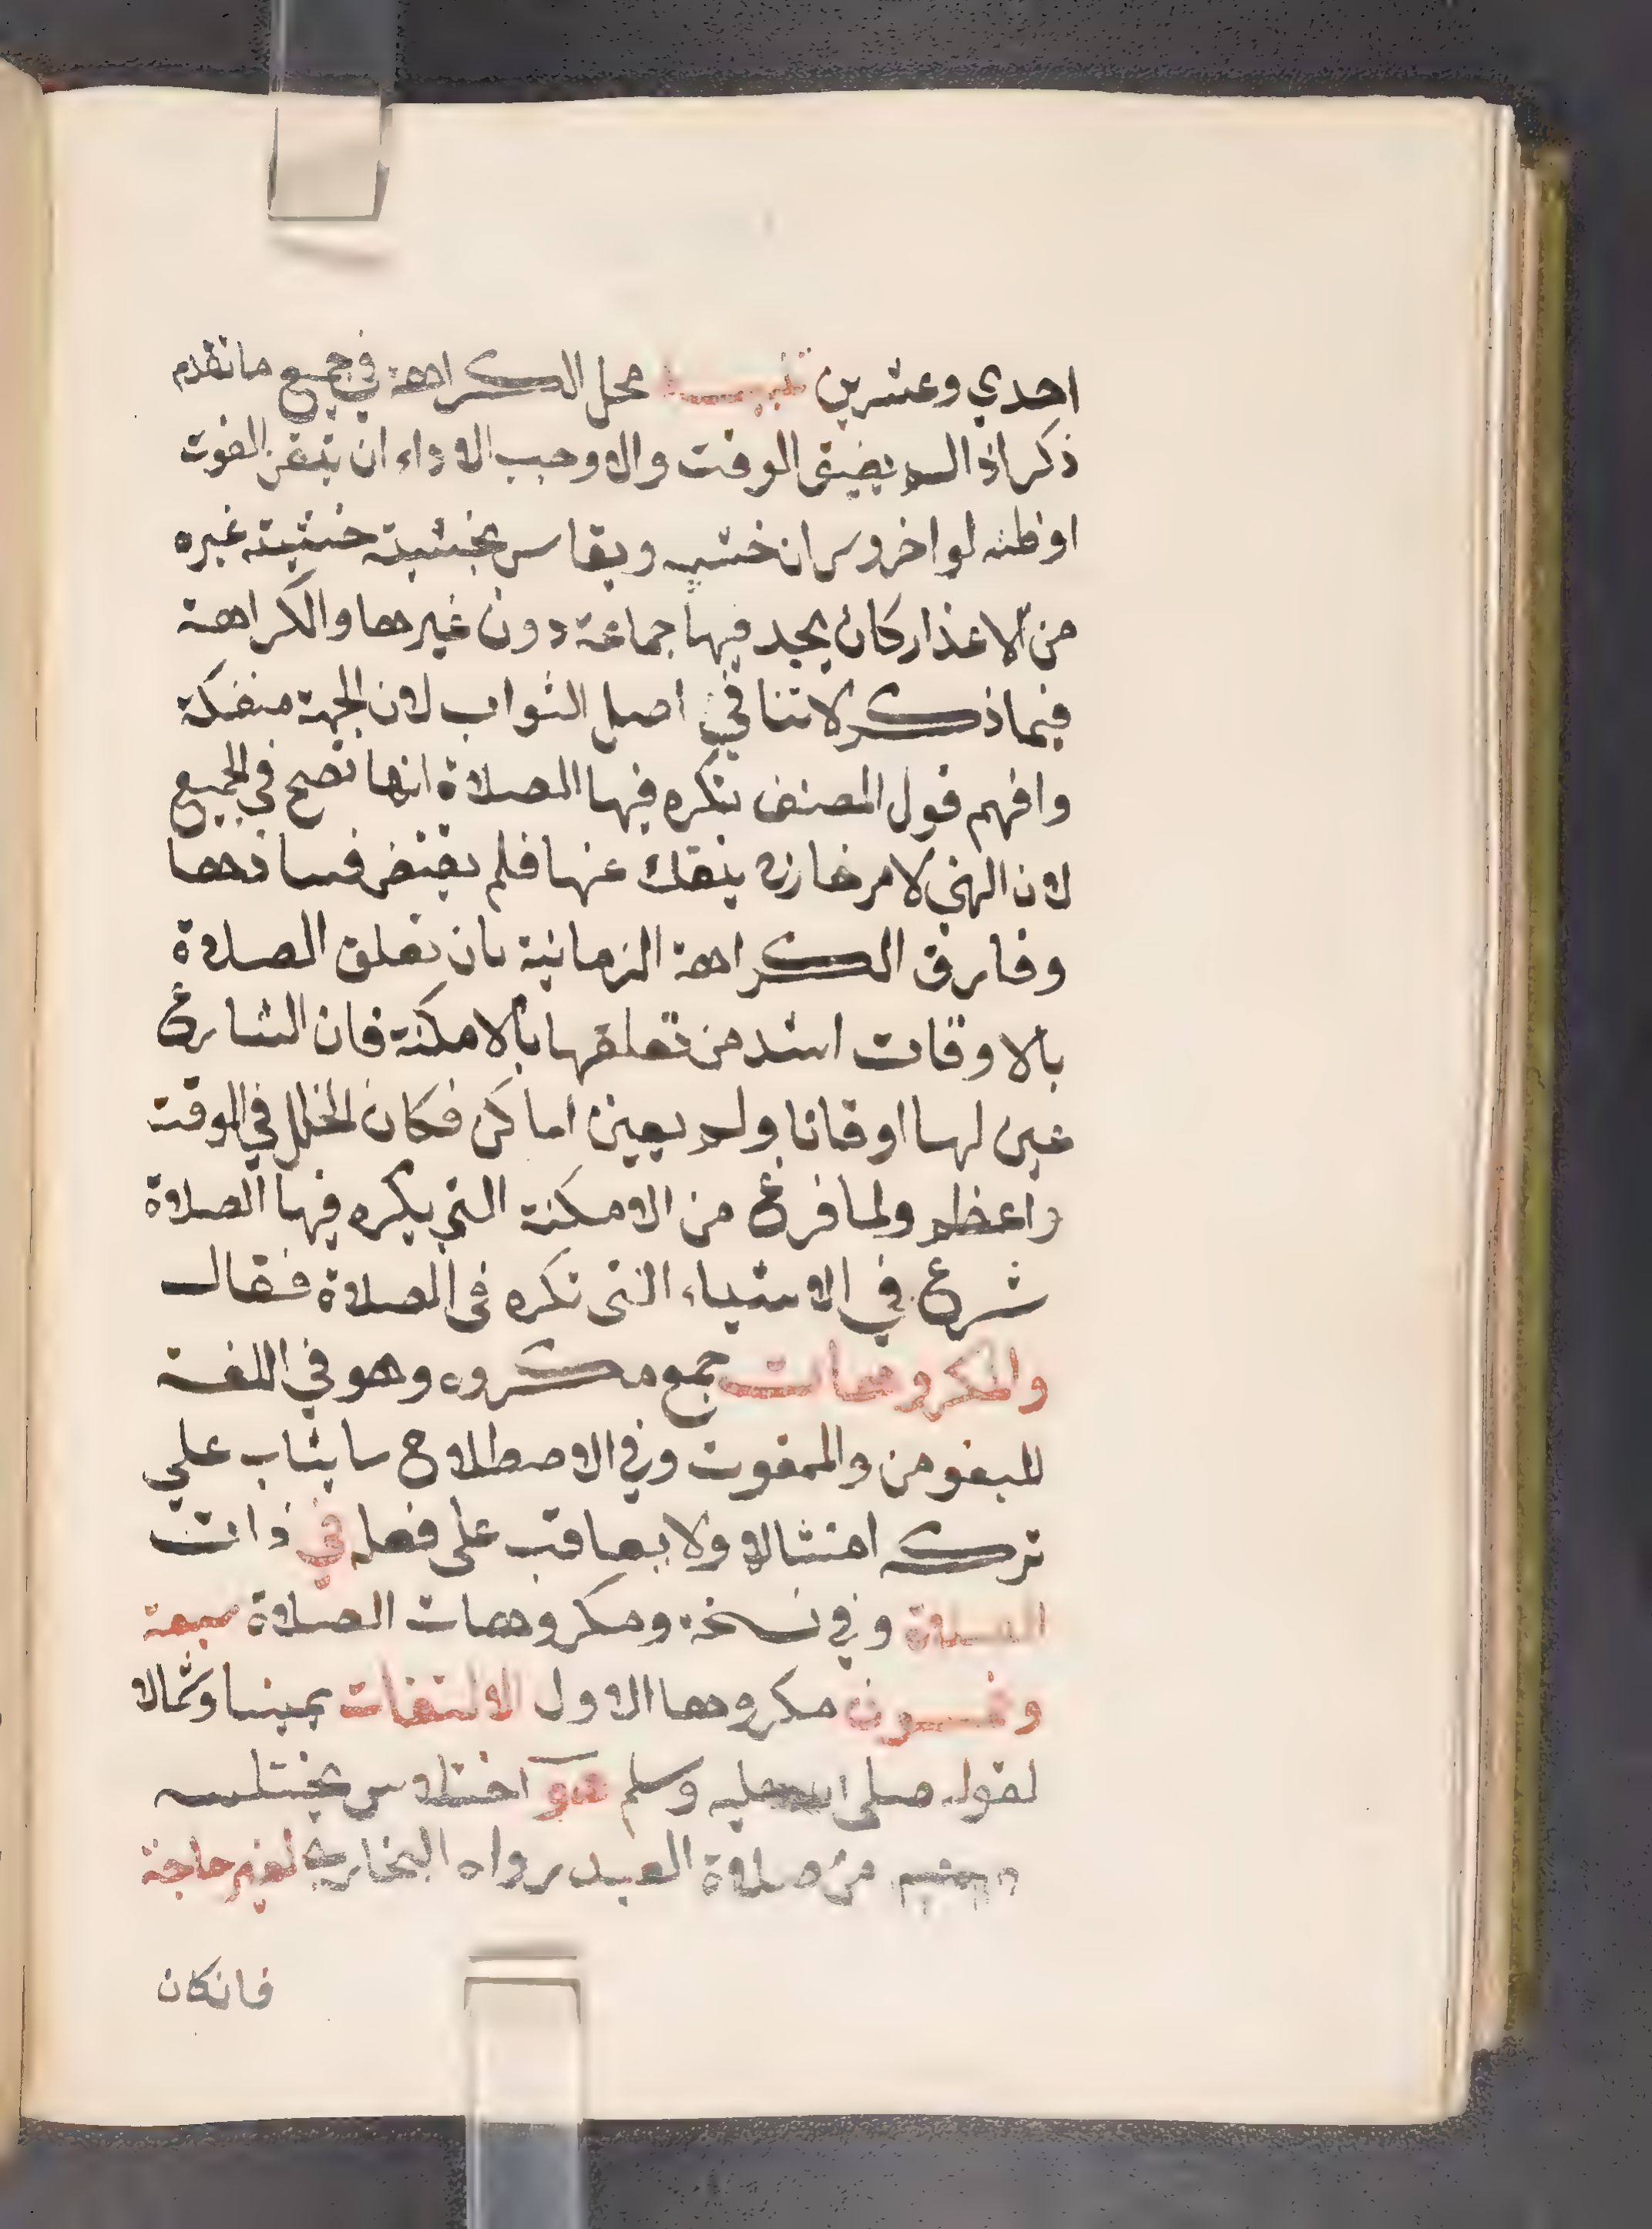 احدي وعشرين تنبيه محل الكراهة في جميع ما تقدم
ذكر اذا لم يضيق الوقت والا وجب الاداء ان تيقن الفوت
او ظنه لو اخر وسن ان خشيه ويقاس بخشيته خشية غيره
من الاعذار كان يجد فيها جماعة دون غيرها والكراهة
فيما ذكر لا تنافي اصل الثواب لان الجهة منفكة
وافهم قول المصنف تكره فيها الصلاة انها تصح في الجميع
لان النهي لامر خارج ينفك عنها فلم يقتض فسادها
وفارق الكراهة الزمانية بان تعلق الصلاة
بالاوقات اشد من تعلقها بالامكنة فان الشارع
عين لها اوقاتا ولم يعين اماكن فكان الخلل في الوقت
اعظم ولما فرغ من الامكنة التي يكره فيها الصلاة
شرع في الاشياء التي تكره في الصلاة فقال
والمكروهات جمع مكروه وهو في اللغة
المبغوض والممقوت وفي الاصطلاح ما يثاب علي
تركه امتثالا ولا يعاقب على فعله في ذات
الصلاة وفي نسخة ومكروهات الصلاة سبعة
وخمسون مكروها الاول الالتفات يمينا وشمالا
لقوله صلى الله عليه وسلم هو اختلاس يختلسه
من صلاة العبد رواه البخاري لغير حاجة
فان كان